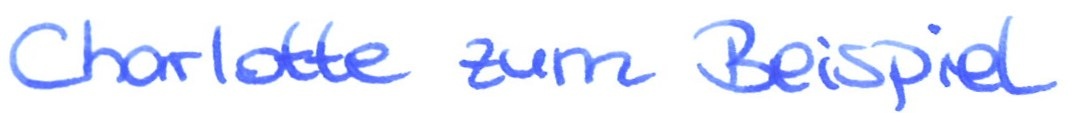 Charlotte zum Beispiel